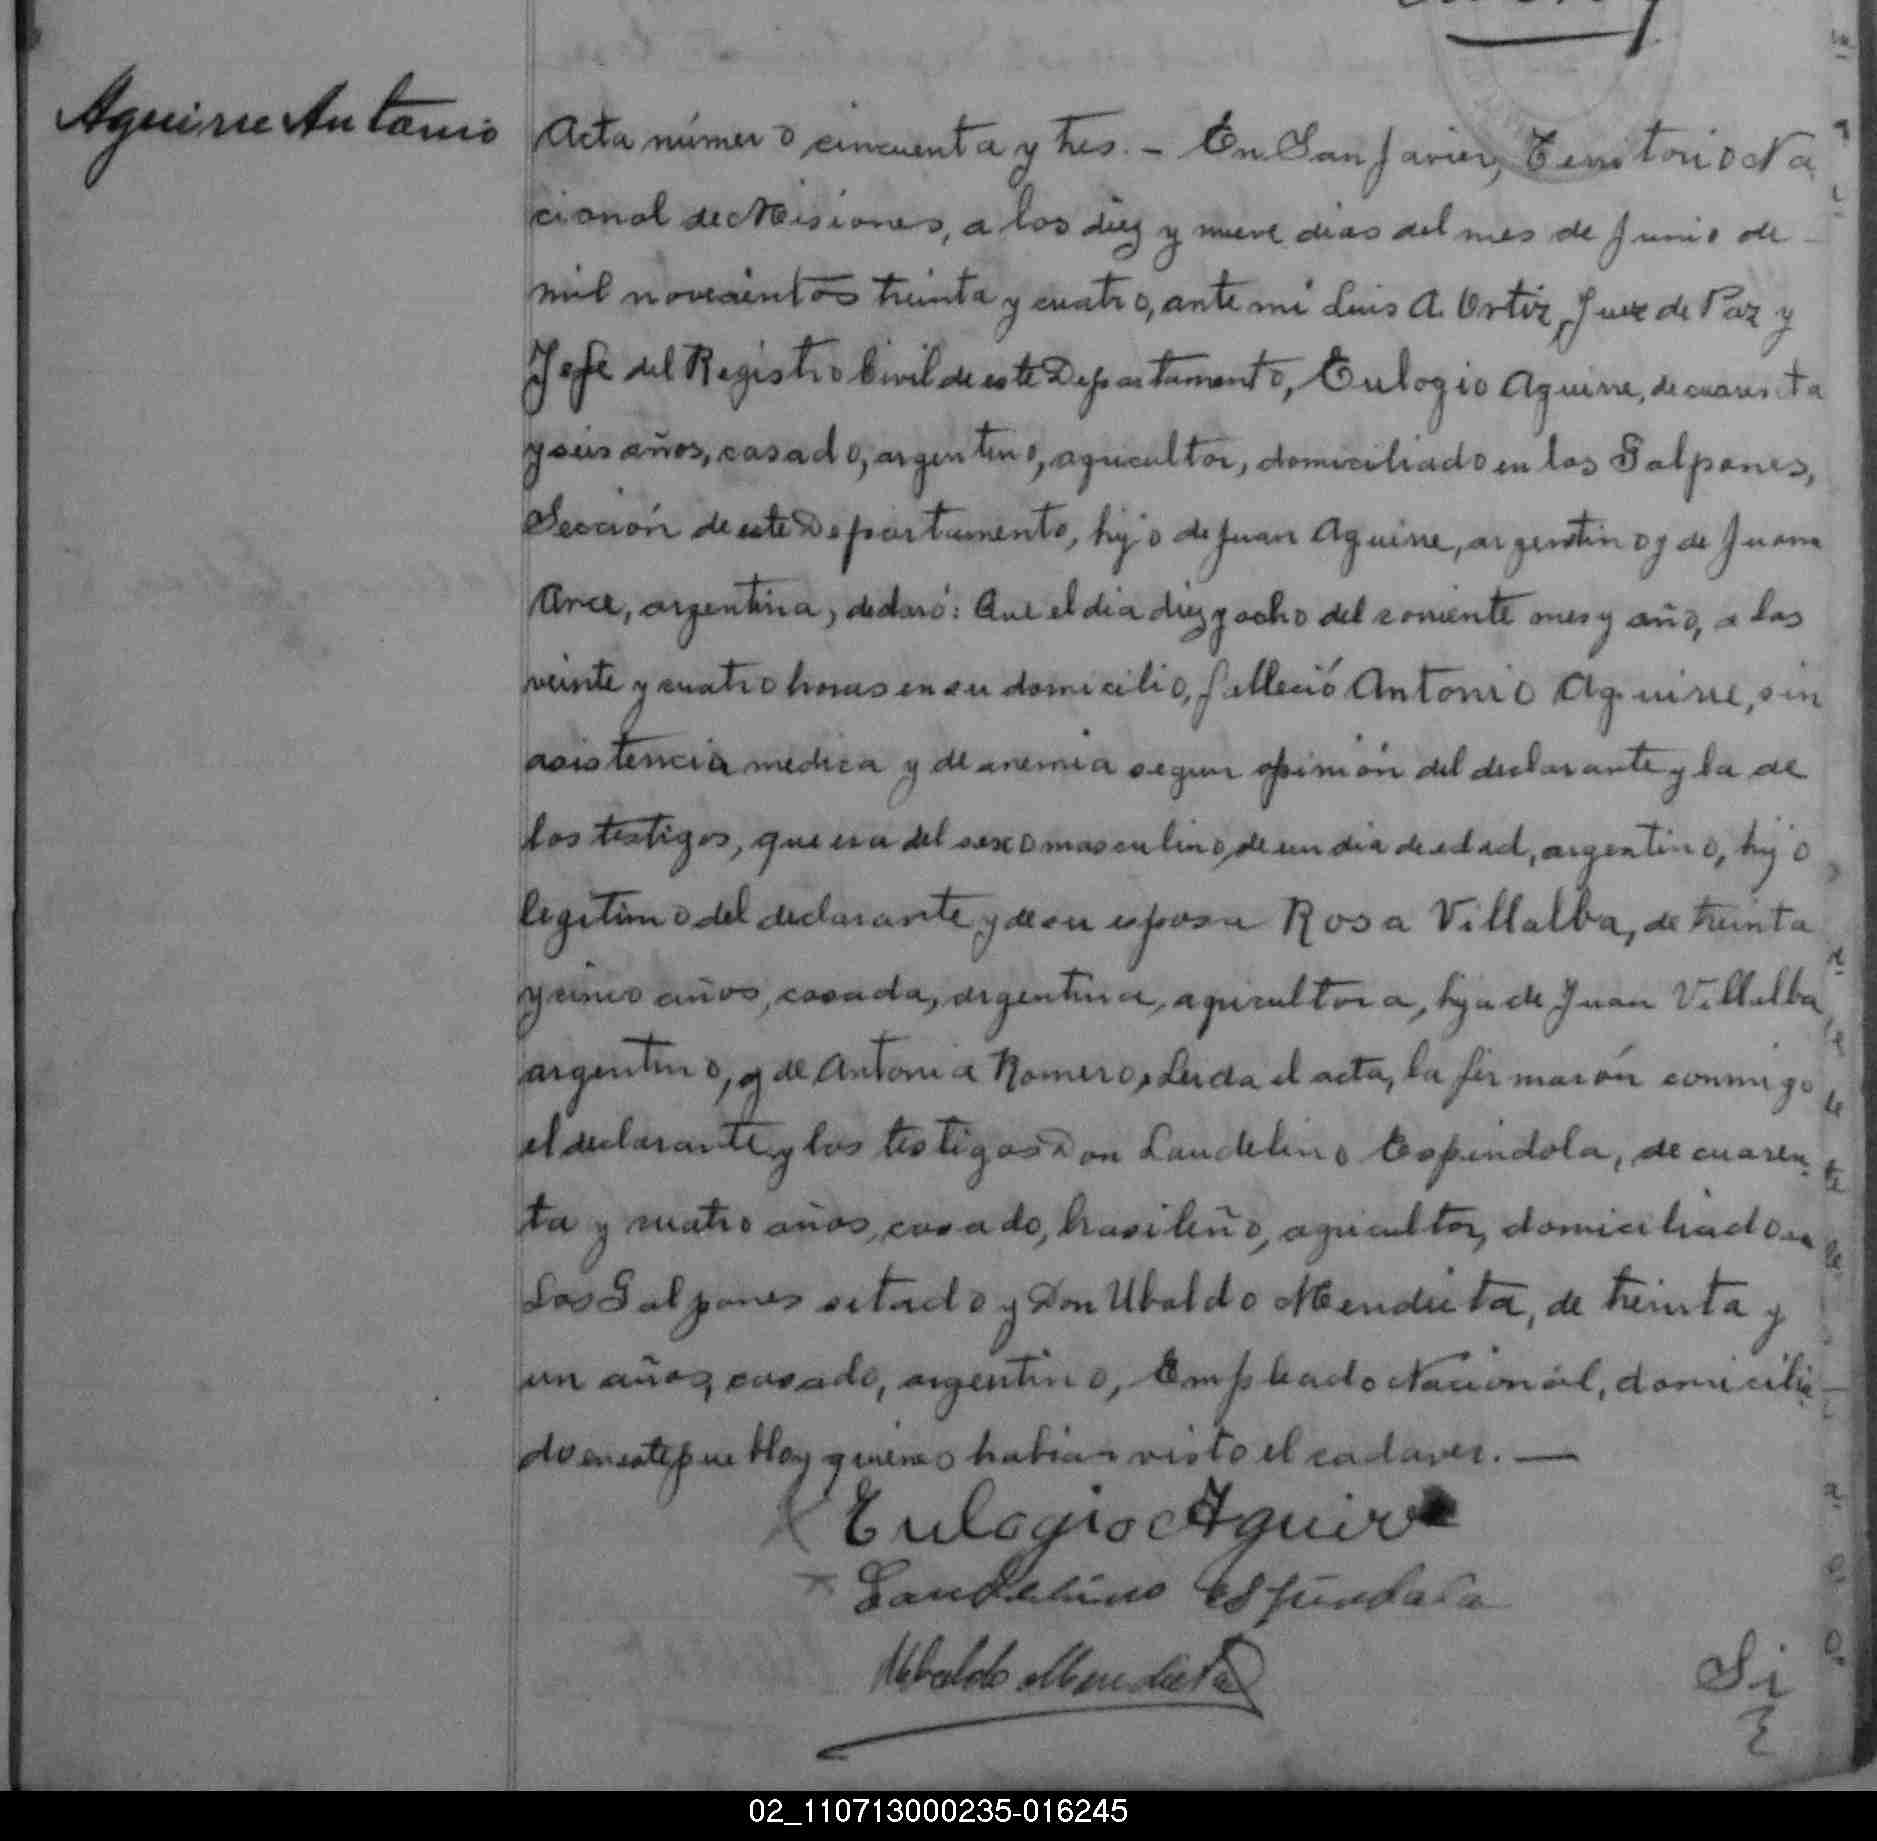 Aguirre Antonio
Acta número cincuenta y tres. - En San Javier, Territorio Na
cional de Misiones, a los diez y nueve dias del mes de Junio de
mil novecientos treinta y cuatro, ante mi Luis A. Ortiz, Juez de Paz y
Jefe del Registro Civil de este Departamento, Eulogio Aguirre, de cuarenta
y seis años, casado, argentino, agricultor, domiciliado en los Galpones,
Sección de este Departamento, hijo de Juan Aguirre, argentino y de Juana
Arce, argentina, declaró: Que el dia diez y ocho del corriente mes y año, a las
veinte y cuatro horas en su domicilio, falleció Antonio Aguirre, sin
asistencia medica y de anemia segun opinión del declarante y la de
los testigos, que era del sexo masculino, de un dia de edad, argentino, hijo
legitimo del declarante y de su esposa Rosa Villalba, de treinta
y cinco años, casada, argentina, agricultora, hija de Juan Villalba
argentino, y de Antonia Romero, Leida el acta, la firmarón conmigo
el declarante y los testigos Don Laudelino Espindola, de cuaren
ta y cuatro años, casado, brasileño, agricultor, domiciliado en
Los Galpones citado y Don Ubaldo Mendieta, de treinta y
un años, casado, argentino, Empleado Nacional, domicilia
do en este pueblo y quienes habian visto el cadaver. —
Eulogio Aguirre
Laudelino Espindola
Ubaldo Mendieta
Si
02_110713000235-016245